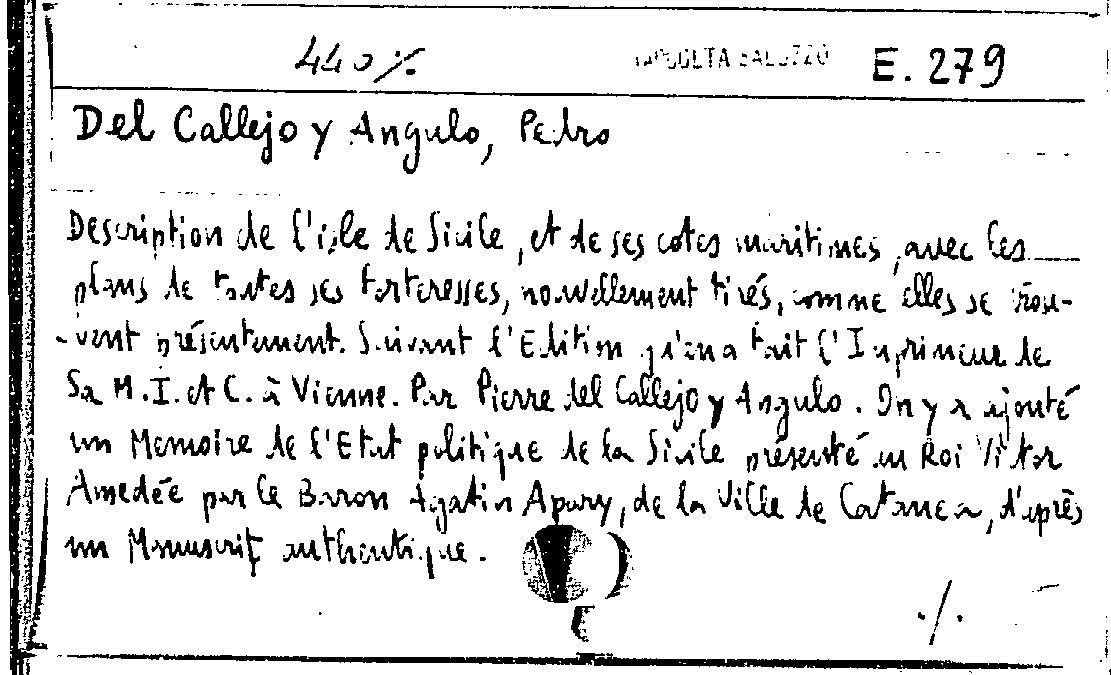 440 ./. RACCOLTA SALUZZO E. 279
Del Callejo y Angulo, Pedro
Description de l'isle de Sicile, et de ses cotes maritimes, avec les
plans de toutes ses forteresses, nouvellement tirés, comme elles se trou-
-vent présentement. Suivant l'Edition qu'en a fait l'Imprimeur de
Sa M. I. et C. à Vienne. Par Pierre del Callejo y Angulo. On y a ajouté
un Memoire de l'Etat politique de la Sicile présenté au Roi Victor
Amedée par le Baron Agatin Apary, de la Ville de Catanea, d'après
un Manuscrit authentique.
./.